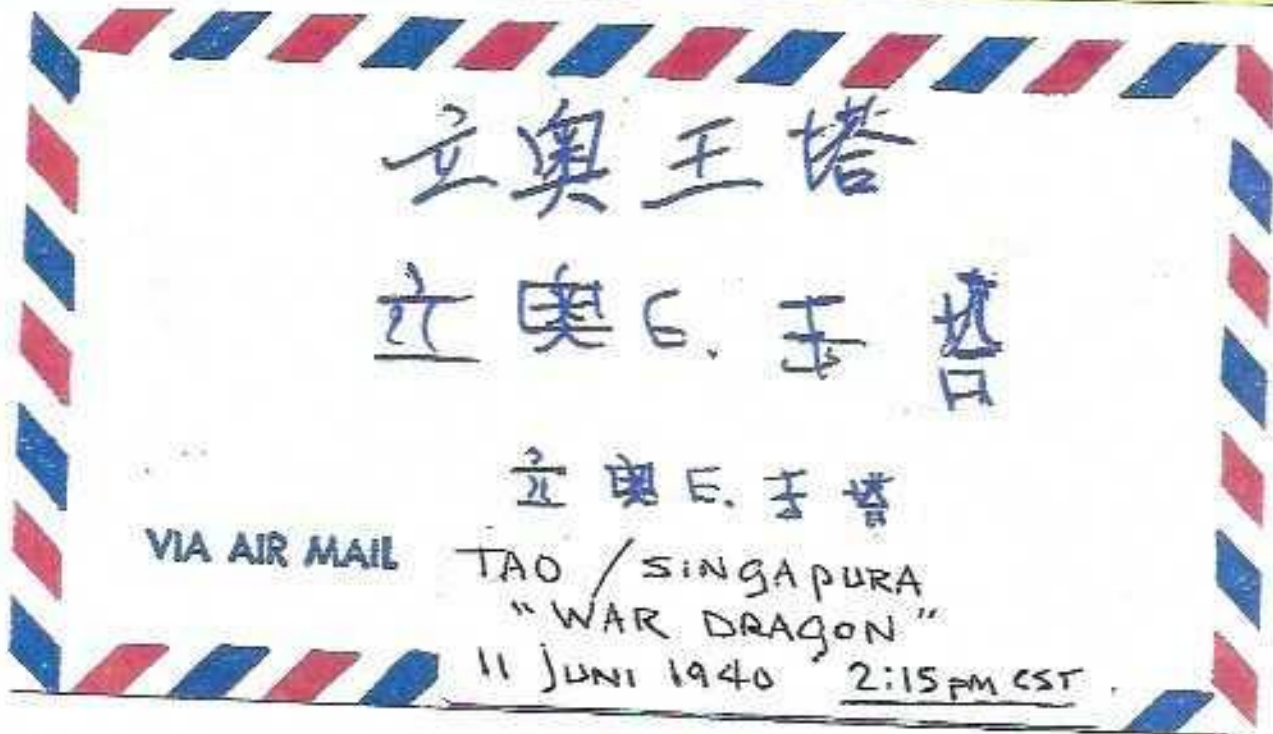 立奥王塔
立奥E.王塔
立奥E.王塔
VIA AIR MAIL
TAO / SINGAPURA
"WAR DRAGON"
11 JUNI 1940 2:15pm CST.